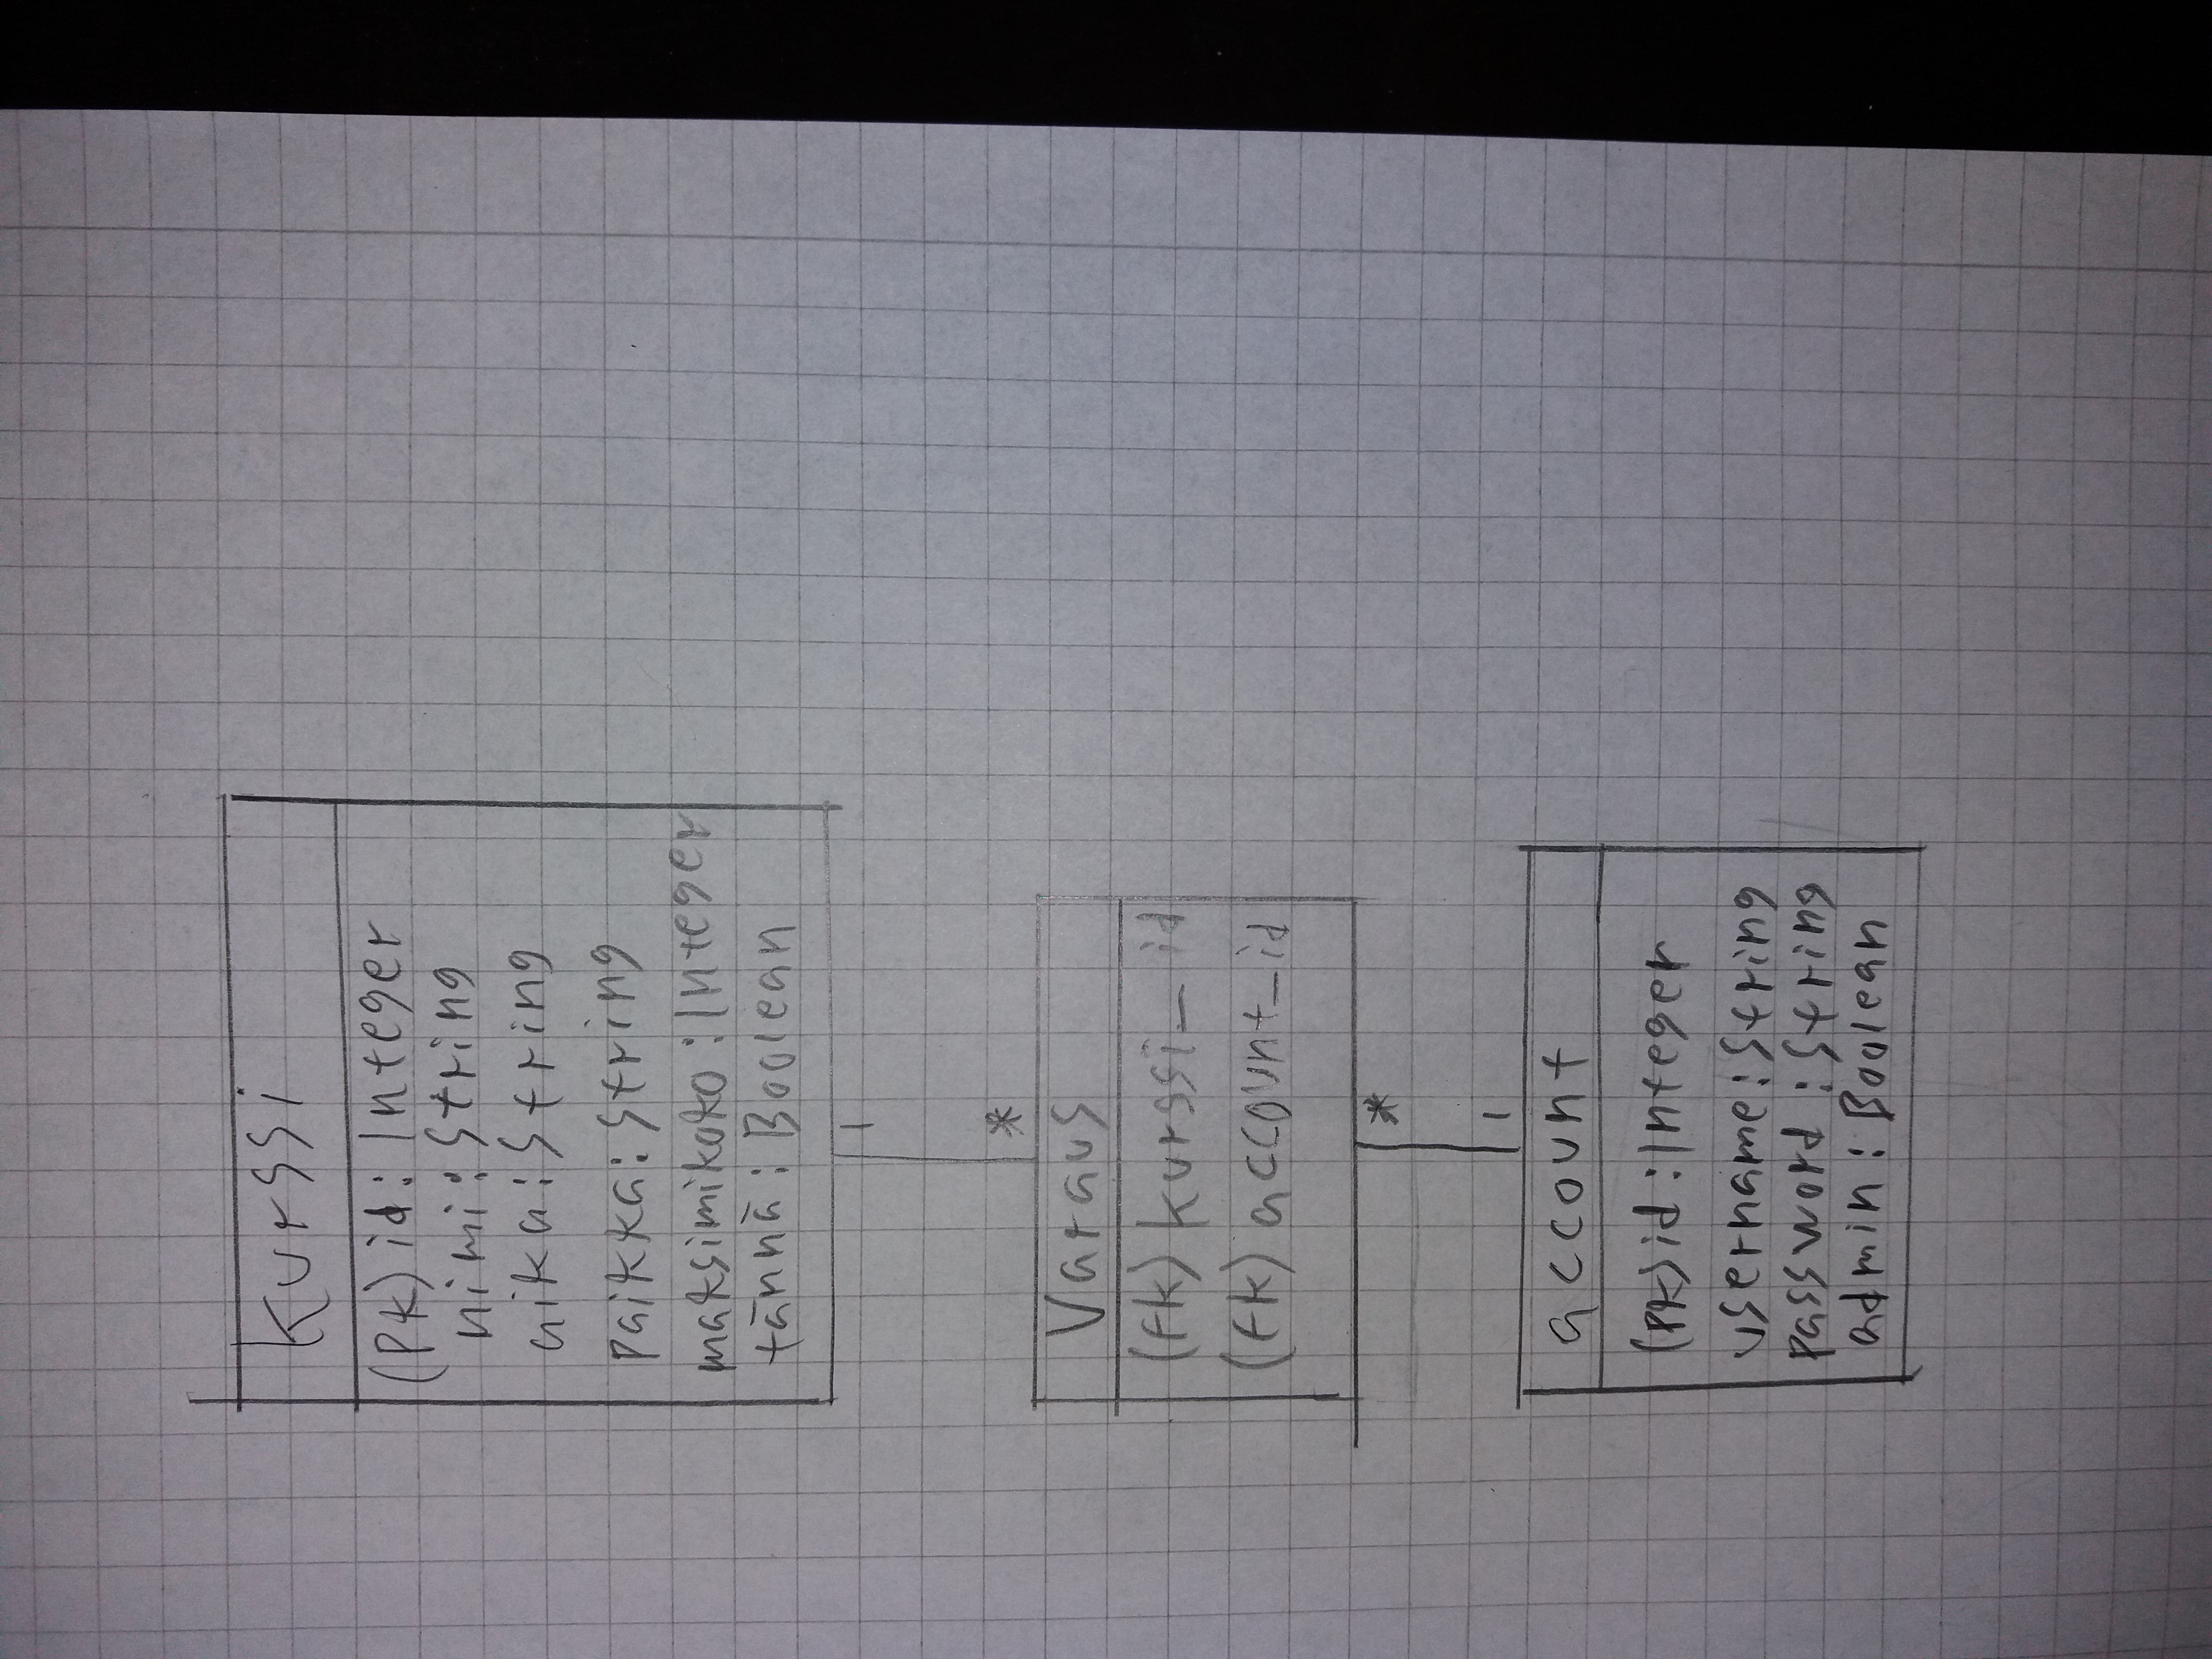 Kurssi
(PK) id: Integer
nimi: String
aika: String
paikka: String
maksimikoko: Integer
tännä: Boolean
1
*
Varaus
(FK) kurssi_id
(FK) account_id
*
1
account
(PK) id: Integer
username: String
password: String
admin: Boolean